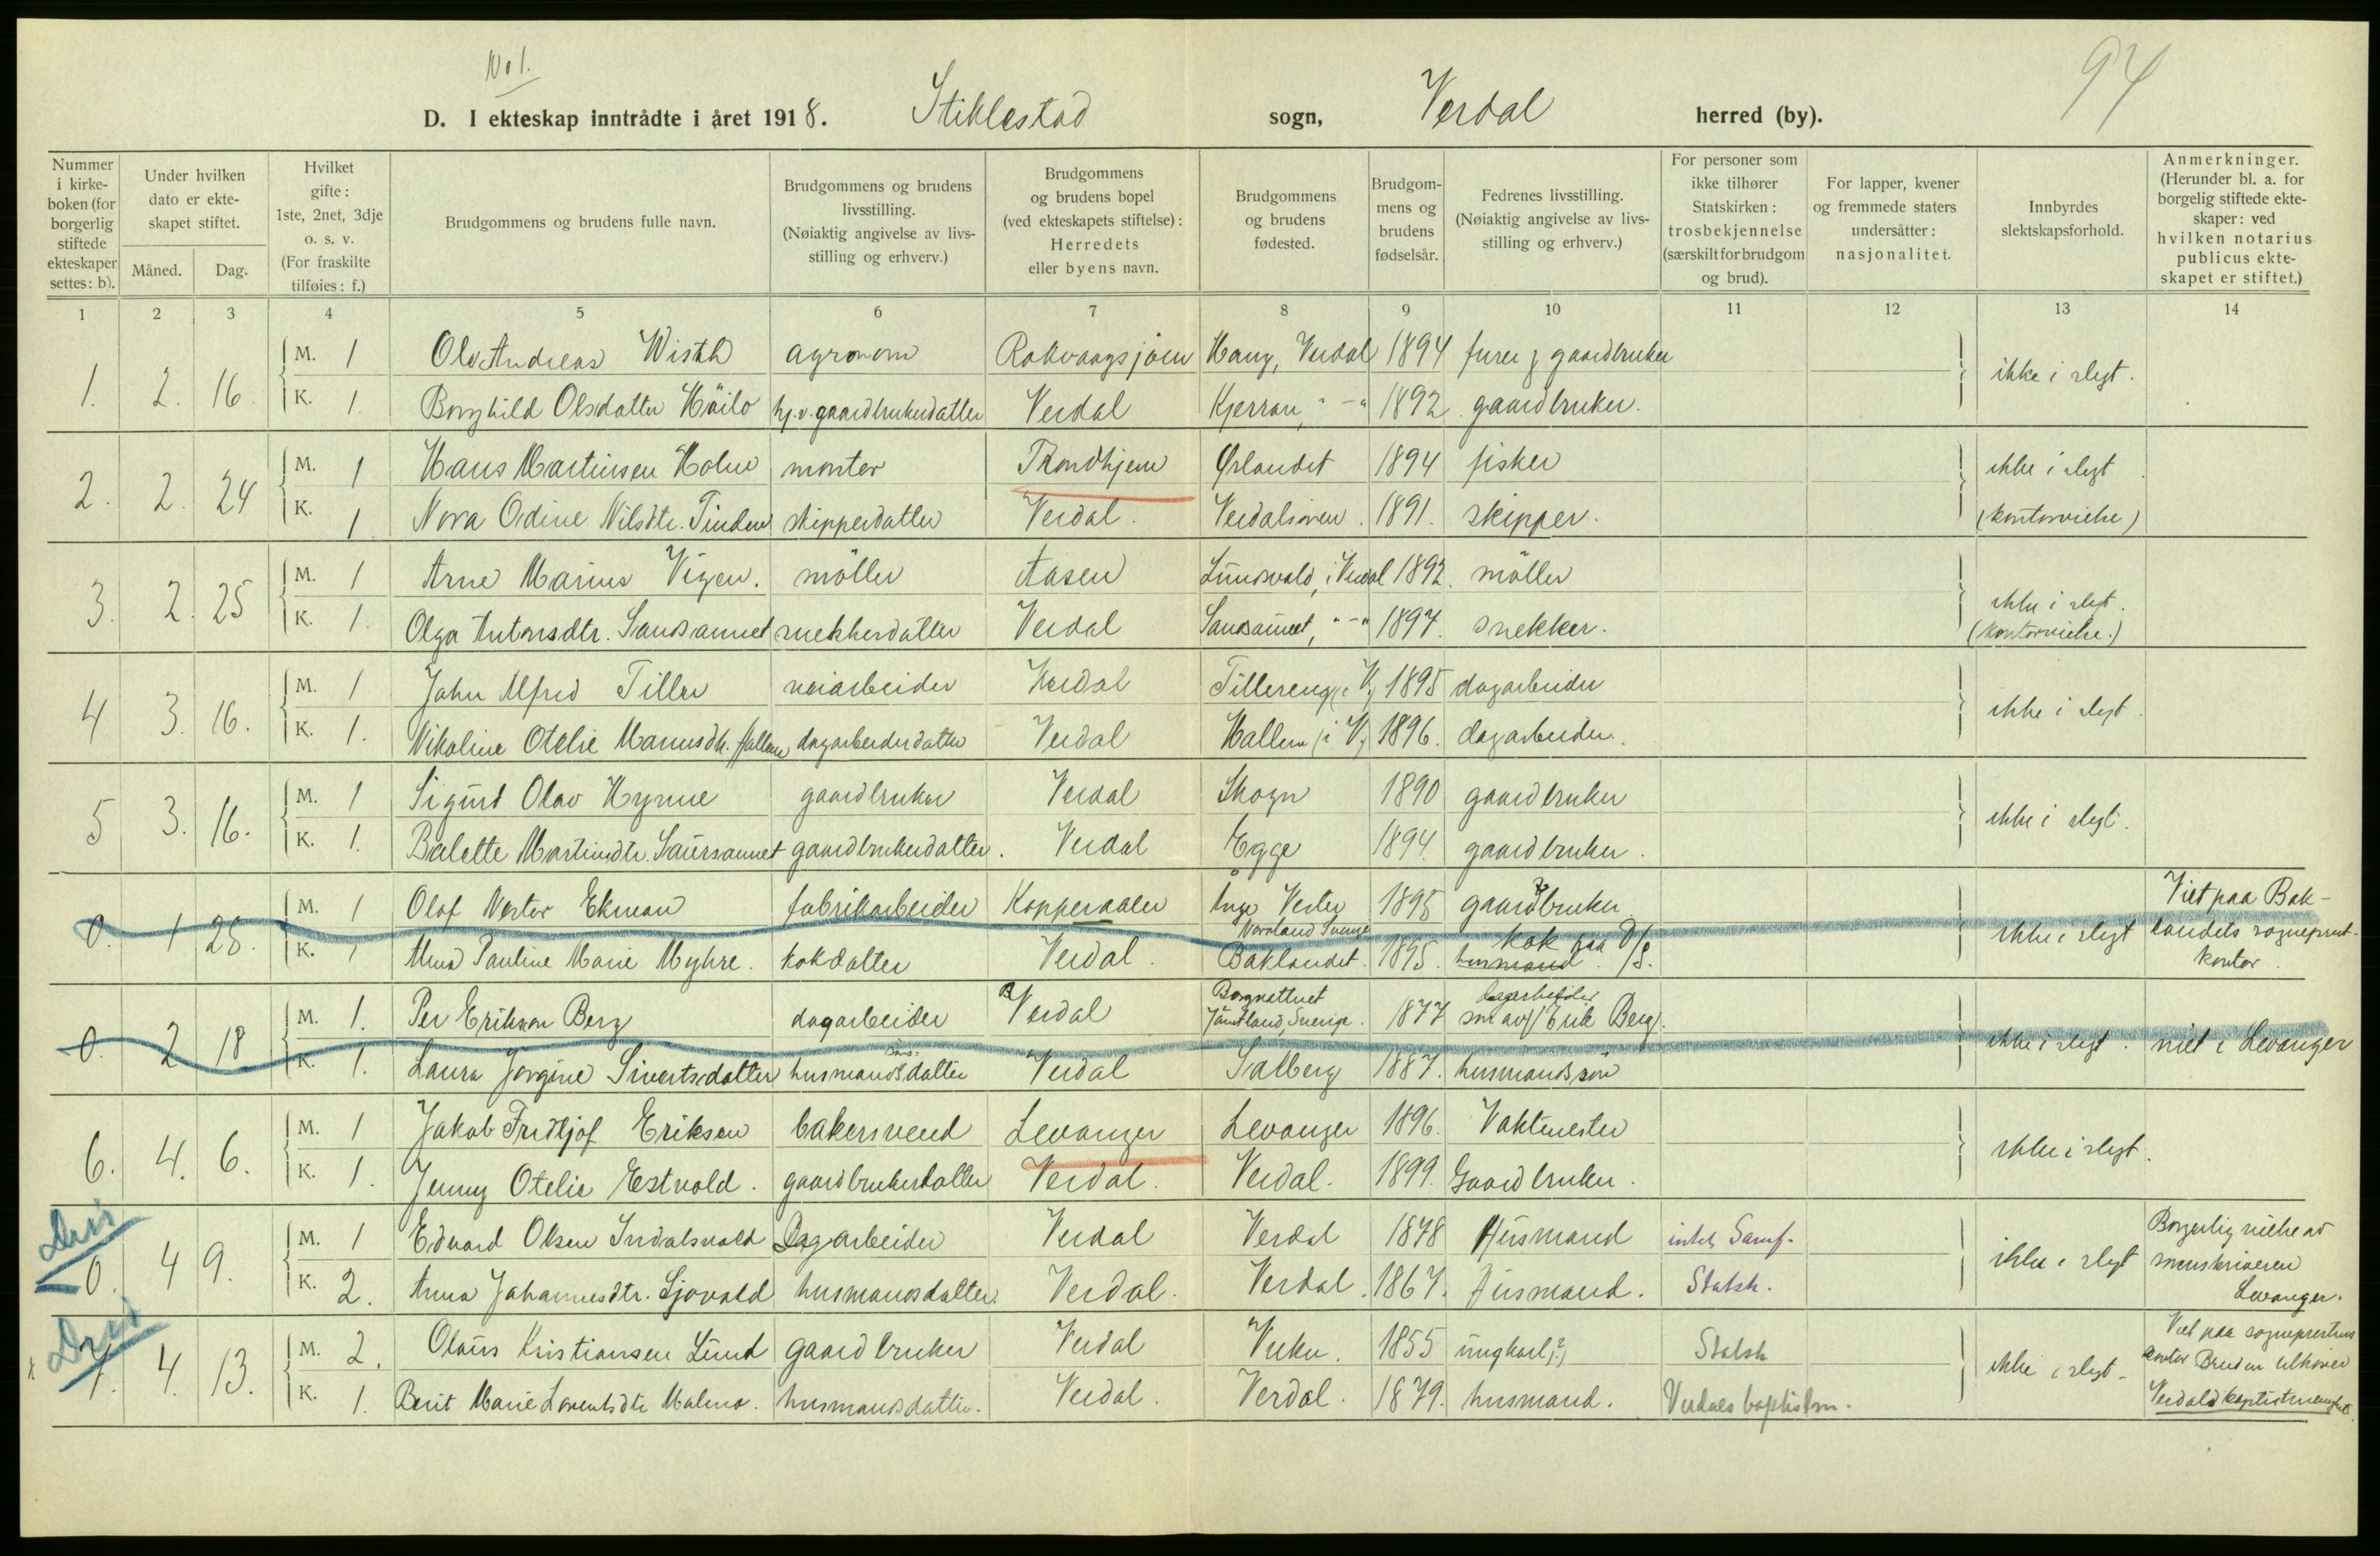 No 1.
94
D. I ekteskap inntrådte i året 1918. Stiklestad sogn, Verdal herred (by).
Nummer i kirke- boken (for borgerlig stiftede ekteskaper settes: b).
Under hvilken dato er ekte- skapet stiftet.
Måned. Dag.
Hvilket gifte: 1ste, 2net, 3dje o. s. v. (For fraskilte tilføies: f.)
Brudgommens og brudens fulle navn.
Brudgommens og brudens livsstilling. (Nøiaktig angivelse av livs- stilling og erhverv.)
Brudgommens og brudens bopel (ved ekteskapets stiftelse): Herredets eller byens navn.
Brudgommens og brudens fødested.
Brudgom- mens og brudens fødselsår.
Fedrenes livsstilling. (Nøiaktig angivelse av livs- stilling og erhverv.)
For personer som ikke tilhører Statskirken: trosbekjennelse (særskilt for brudgom og brud).
For lapper, kvener og fremmede staters undersåtter: nasjonalitet.
Innbyrdes slektskapsforhold.
Anmerkninger. (Herunder bl. a. for borgelig stiftede ekte- skaper: ved hvilken notarius publicus ekte- skapet er stiftet.)
1 2 3 4 5 6 7 8 9 10 11 12 13 14
M. 1 Olav Andreas Wisth agronom Haug, Verdal 1894 gaardbruker
1. 2. 16. ikke i slegt.
K. 1 Borghild Olsdatter gaardbrukerdatter Verdal 1892. gaardbruker.
M. 1 Hans Martinsen Holm montør Trondhjem Ørlandet 1894 fisker
2. 2. 24 ikke i slegt
K. 1. Nora Odine Nilsdtr. Tinden skipperdatter Verdal. Verdalsøren. 1891. skipper. (kontorvielse)
M. 1 Arne Marius Vigen. möller Aasen i Verdal 1892. möller
3. 2. 25 ikke i slegt.
K. 1. Olga Antonsdtr. Sandsaunet snekkerdatter Verdal Sandsaunet, "-" 1897. snekker. (kontorvielse.)
M. 1 John Alfred Tiller veiarbeider Verdal Tillereng (i V.) 1895 dagarbeider
4 3. 16. ikke i slegt.
K. 1. Nikoline Otelie Mariusdtr. Hallem dagarbeiderdatter Verdal Hallem (i V.) 1896. dagarbeider.
M. 1 Sigurd Olav Hynne gaardbruker Verdal Skogn 1890 gaardbruker
5 3. 16. ikke i slegt.
K. 1. Martinsdtr. gaardbrukerdatter. Verdal Egge 1894. gaardbruker.
M. 1 Olof Ekman fabrikarbeider Kopperaaen 1895 gaardbruker Viet paa Bak-
0. 1 28. ikke i slegt landets sogneprest-
K. 1 Pauline Marie Myhre. kokdatter Verdal. Baklandet. 1895. husmand kok paa D/S. kontor.
M. 1. Per Erikson Berg dagarbeider Verdal Borgvattnet Jämtland, Sverige. 1877 son av (Erik Berg).
0. 2 18 ikke i slegt. viet i Levanger
K. 1. Laura Jørgine Sivertsdatter husmandsdatter Verdal Salberg 1887. husmandssøn
M. 1 Jakob Fridtjof Eriksen bakersvend Levanger Levanger 1896. Vaktmester
6. 4. 6. ikke i slegt.
K. 1. Jenny Otelie Estvold. gaardbrukerdatter Verdal. Verdal. 1899. Gaardbruker.
Diss
M. 1 Edvard Olsen Indalsvold Dagarbeider Verdal Verdal 1878 Husmand intet Samf. Borgerlig vielse av
0. 4 9. ikke i slegt sorenskriveren
K. 2. Anna Johannesdtr. husmandsdatter. Verdal. Verdal. 1867. Husmand. Statsk. Levanger.
Diss
M. 2. Olaus Kristiansen Lund gaardbruker Verdal Vuku. 1855 ungkarl(?) Statsk Viet paa sogneprestens
7. 4. 13. ikke i slegt. kontor Bruden tilhører
K. 1. Berit Marie Lorentsdtr. husmandsdatter. Verdal. Verdal. 1879. husmand. Verdals baptistm. Verdals baptistmenighet.